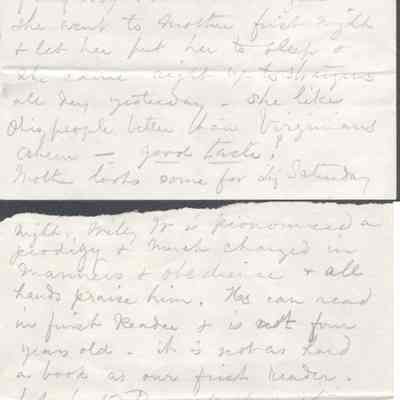 She went to Mother first night
& let her put her to sleep &
she came right up to strangers
all day yesterday - She likes
Ohio people better than Virginians
Ahem — good taste!
Mother looks some for Liz Saturday
night. Wiley W is pronounced a
prodigy & much changed in
manners & obedience & all
hands praise him. Has can read
in first Reader & is not four
years old. it is not as hard
a book as our first Reader.